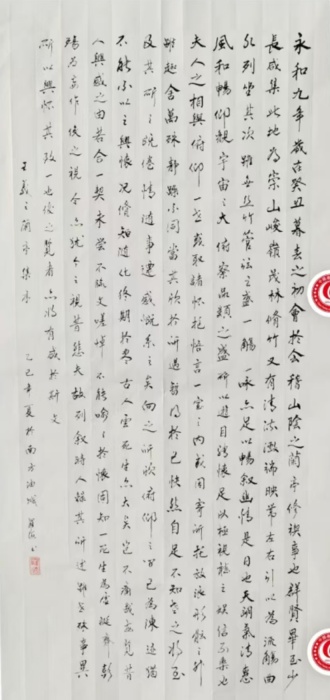 永和九年歲在癸丑暮春之初會於會稽山陰之蘭亭修禊事也群賢畢至少
長咸集此地有崇山峻嶺茂林脩竹又有清流激湍映帶左右引以為流觴曲
水列坐其次雖無絲竹管弦之盛一觴一詠亦足以暢敘幽情是日也天朗氣清惠
風和暢仰觀宇宙之大俯察品類之盛所以遊目騁懷足以極視聽之娛信可樂也
夫人之相與俯仰一世或取諸懷抱悟言一室之內或因寄所託放浪形骸之外
雖趣舍萬殊靜躁不同當其欣於所遇暫得於己快然自足不知老之將至
及其所之既倦情隨事遷感慨係之矣向之所欣俯仰之間已為陳迹猶
不能不以之興懷況脩短隨化終期於盡古人云死生亦大矣豈不痛哉每覽昔
人興感之由若合一契未嘗不臨文嗟悼不能喻之於懷固知一死生為虛誕齊彭
殤為妄作後之視今亦猶今之視昔悲夫故列敘時人錄其所述雖世殊事異
所以興懷其致一也後之覽者亦將有感於斯文
王羲之蘭亭集序
乙巳年夏於南方油城 書